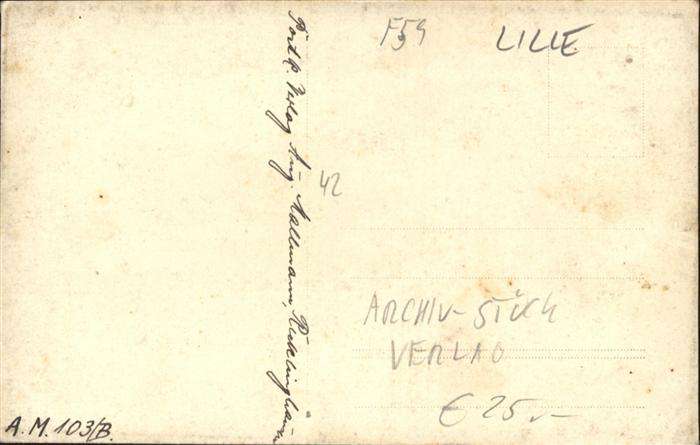 F59
LILLE
Postk. Verlag Aug. Kallmann, Recklinghausen
42
ARCHIV-STÜCK
VERLAG
€ 25,-
A.M. 103/B.